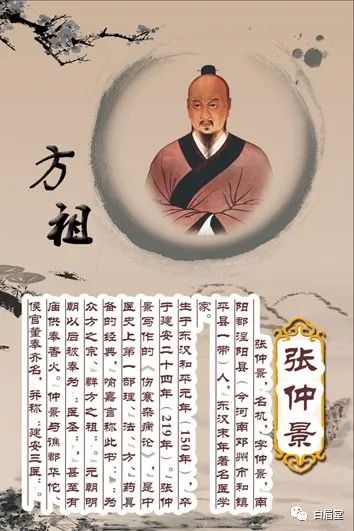 方祖
张仲景
张仲景，名机，字仲景，南
阳郡涅阳县（今河南邓州市和镇
平县一带）人。东汉末年著名医学
家。
生于东汉和平元年（150年），卒
于建安二十四年（219年）。张仲
景写作的《伤寒杂病论》，是中
医史上第一部理、法、方、药具
备的经典，喻嘉言称此书："为
众方之宗、群方之祖"。元明
朝以后被奉为"医圣"，甚至有
庙供奉香火。仲景与谯郡华佗、
侯官董奉齐名，并称"建安三医"。
白眉堂